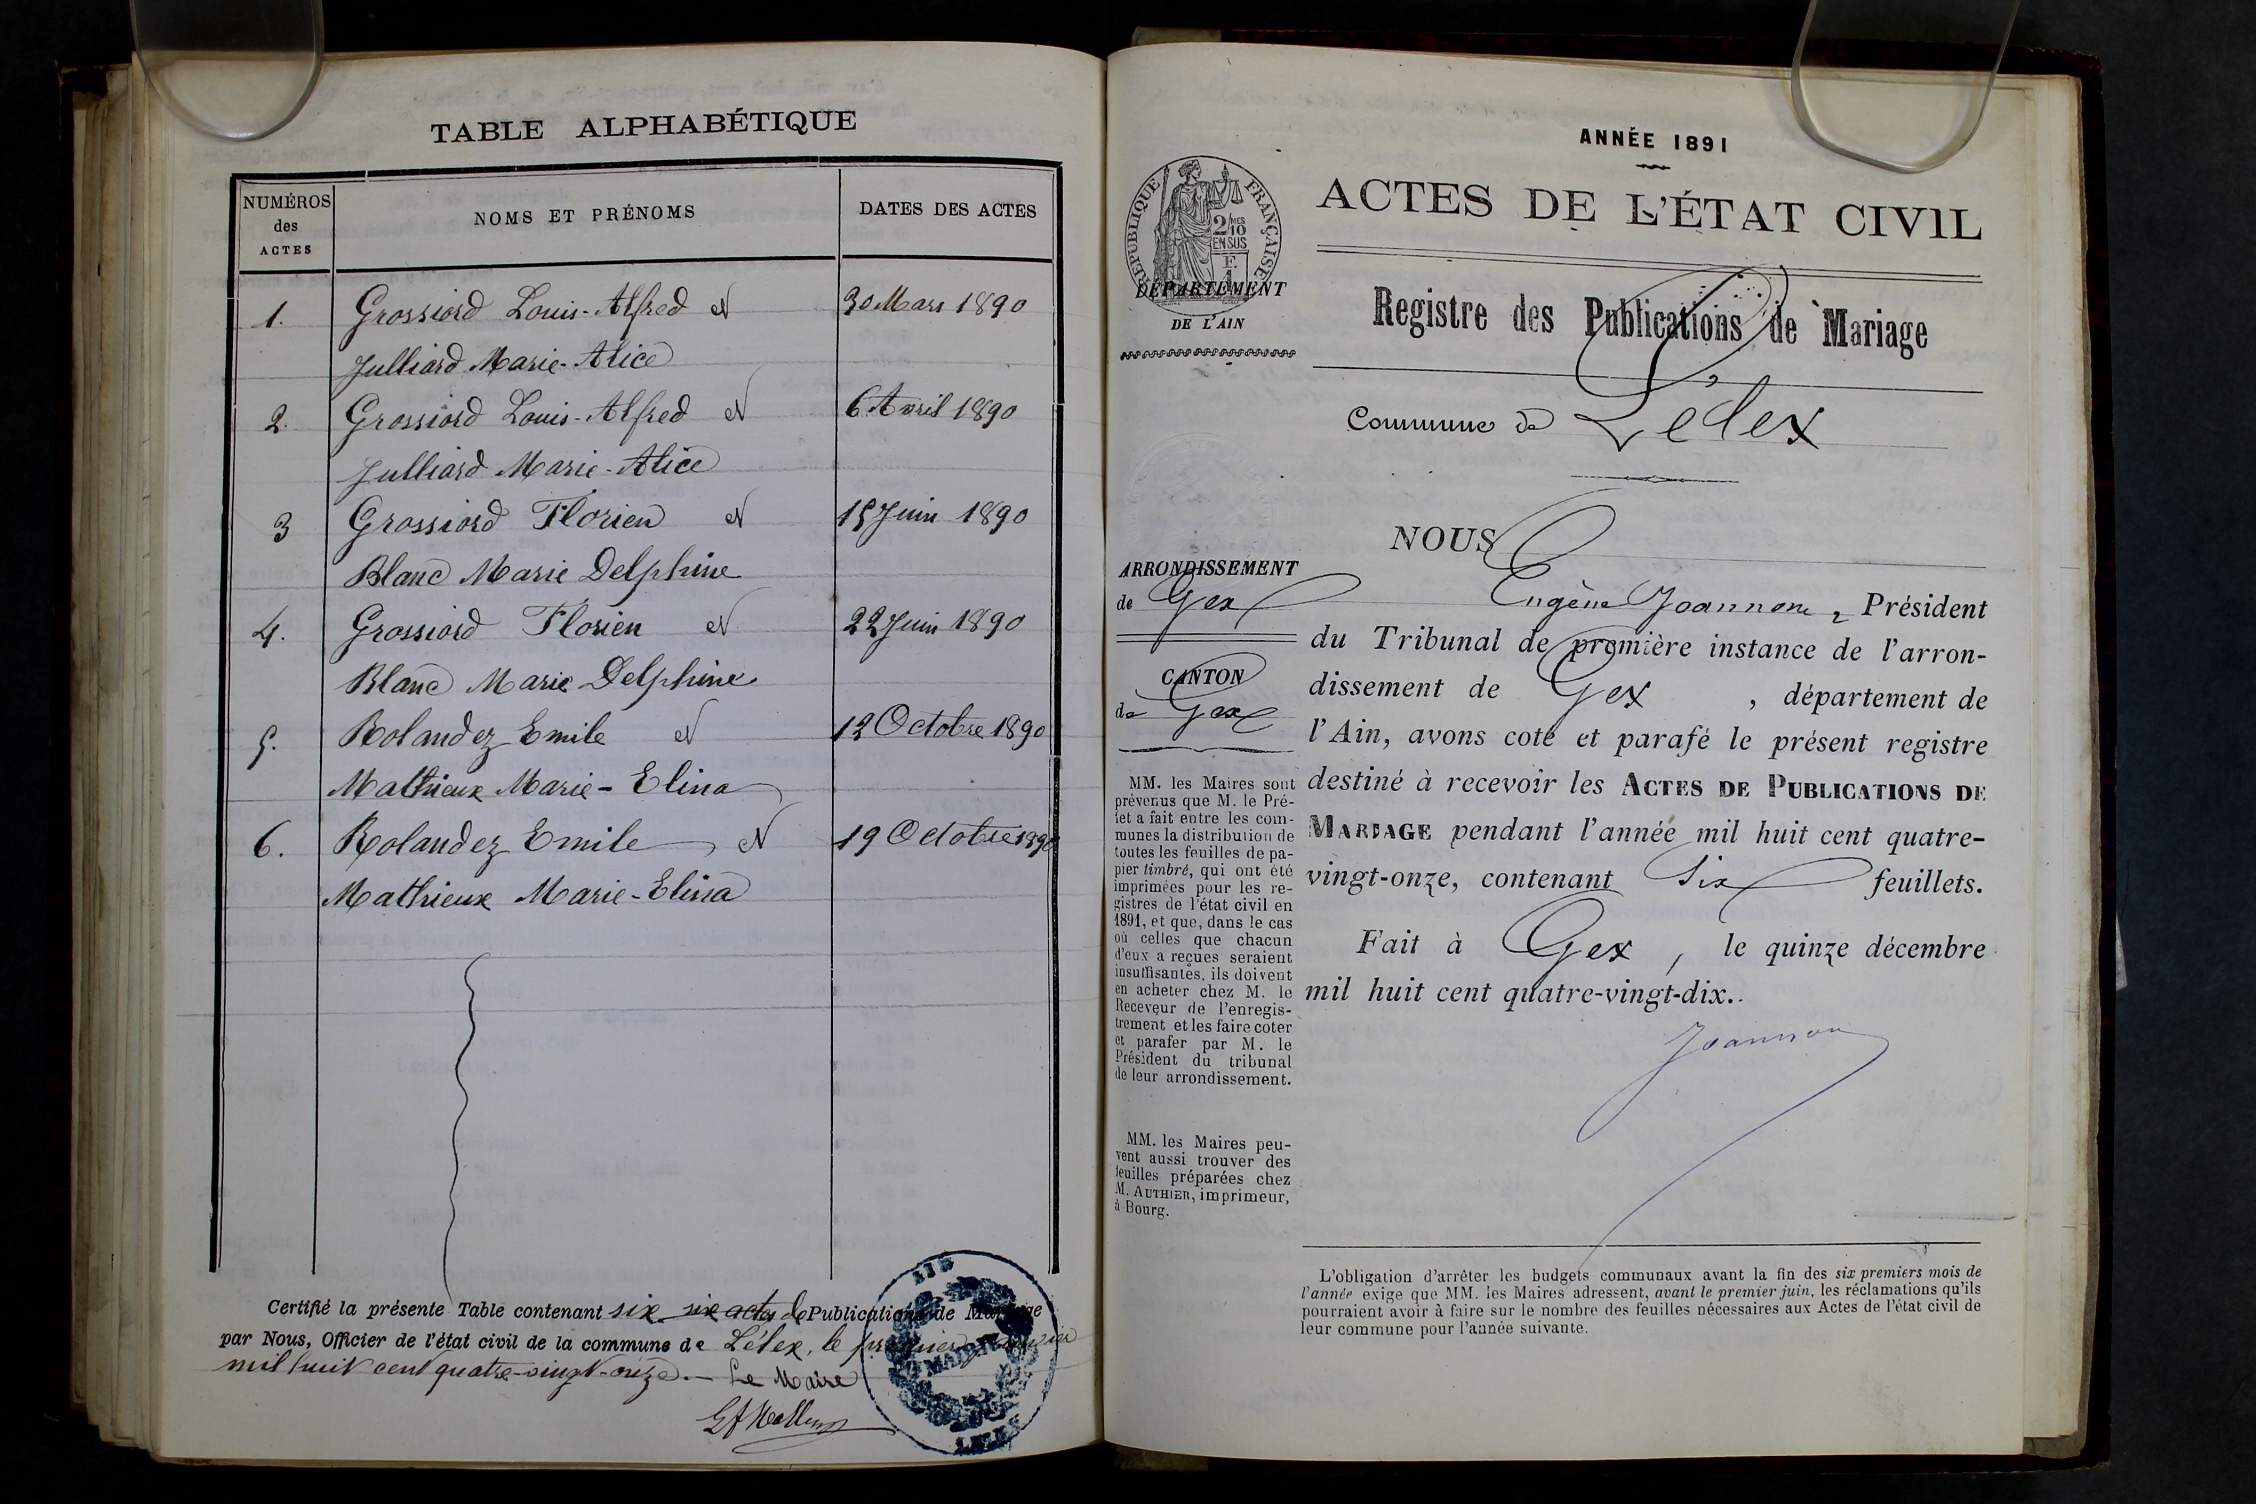 TABLE ALPHABÉTIQUE
NUMÉROS
des
ACTES
NOMS ET PRÉNOMS
DATES DES ACTES
1. Grossiord Louis-Alfred et 30 Mars 1890
Julliard Marie-Alice
2. Grossiord Louis-Alfred et 6 Avril 1890
Julliard Marie-Alice
3 Grossiord Florien et 15 Juin 1890
Blanc Marie Delphine
4. Grossiord Florien et 22 Juin 1890
Blanc Marie Delphine
5. Rolandez Emile et 12 Octobre 1890
Mathieux Marie-Elina
6. Rolandez Emile et 19 Octobre 1890
Mathieux Marie-Elina
Certifié la présente Table contenant six six actes de Publications de Mariage
par Nous, Officier de l'état civil de la commune de Lélex, le premier janvier
mil huit cent quatre-vingt-onze.— Le Maire
MAIRIE
ANNÉE 1891
RÉPUBLIQUE FRANÇAISE
2/10
EN SUS
DÉPARTEMENT
DE L'AIN
ACTES DE L'ÉTAT CIVIL
Registre des Publications de Mariage
Commune de Lélex
ARRONDISSEMENT
de Gex
CANTON
de Gex
MM. les Maires sont
prévenus que M. le Pré-
fet a fait entre les com-
munes la distribution de
toutes les feuilles de pa-
pier timbré, qui ont été
imprimées pour les re-
gistres de l'état civil en
1891, et que, dans le cas
où celles que chacun
d'eux a reçues seraient
insuffisantes, ils doivent
en acheter chez M. le
Receveur de l'enregis-
trement et les faire coter
et parafer par M. le
Président du tribunal
de leur arrondissement.
MM. les Maires peu-
vent aussi trouver des
feuilles préparées chez
M. AUTHIER, imprimeur,
à Bourg.
NOUS
Eugène Joannon, Président
du Tribunal de première instance de l'arron-
dissement de Gex, département de
l'Ain, avons coté et parafé le présent registre
destiné à recevoir les ACTES DE PUBLICATIONS DE
MARIAGE pendant l'année mil huit cent quatre-
vingt-onze, contenant six feuillets.
Fait à Gex, le quinze décembre
mil huit cent quatre-vingt-dix.
Joannon
L'obligation d'arrêter les budgets communaux avant la fin des six premiers mois de
l'année exige que MM. les Maires adressent, avant le premier juin, les réclamations qu'ils
pourraient avoir à faire sur le nombre des feuilles nécessaires aux Actes de l'état civil de
leur commune pour l'année suivante.